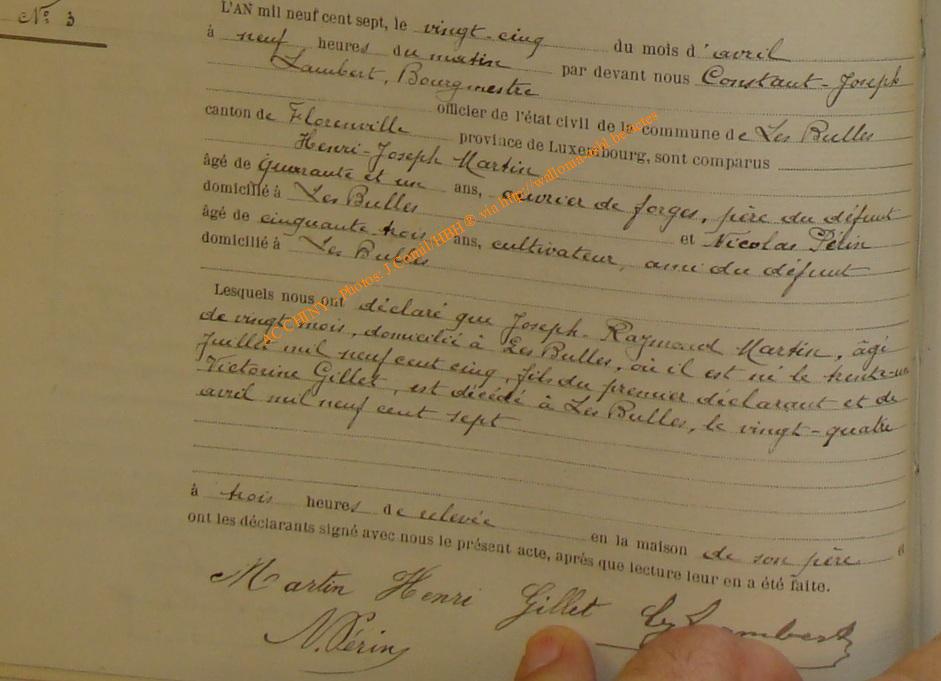 N° 3
L'AN mil neuf cent sept, le vingt-cinq du mois d'avril
à neuf heures du matin par devant nous Constant-Joseph
Lambert, Bourgmestre
officier de l'état civil de la commune de Les Bulles
canton de Florenville province de Luxembourg, sont comparus
Henri-Joseph Martin
âgé de quarante et un ans, ouvrier de forges, père du défunt
domicilié à Les Bulles et Nicolas Périn
âgé de cinquante trois ans, cultivateur, ami du défunt
domicilié à Les Bulles
Lesquels nous ont déclaré que Joseph-Raymond Martin, âgé
de vingt mois, domicilié à Les Bulles, où il est né le trente-un
Juillet mil neuf cent cinq, fils du premier déclarant et de
Victorine Gillet, est décédé à Les Bulles, le vingt-quatre
avril mil neuf cent sept
à trois heures de relevée en la maison de son père et
ont les déclarants signé avec nous le présent acte, après que lecture leur en a été faite.
Martin Henri Gillet Lambert
N. Périn
ACCHINY - Photos: J Comil/HBH ® via http://wallonia-asbl.be/actes